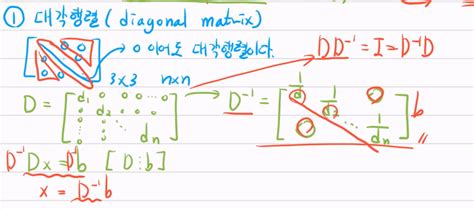 ① 대각행렬 (diagonal matrix)
→ 0 이어도 대각행렬이다.
DD⁻¹ = I = D⁻¹D
3×3 n×n
D = [d₁ 0 0 ... 0 0 d₂ 0 ... 0 ... dn] → D⁻¹ = [1/d₁ 1/d₂ 0 0 ⋱ 1/dn] b
D⁻¹Dx = D⁻¹b [D : b]
x = D⁻¹b